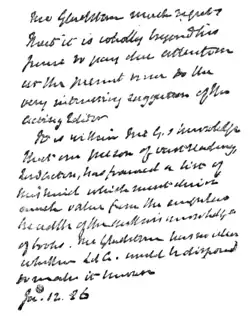 Mr Gladstone much regrets
that it is wholly beyond his
power to pay due attention
at the present time to the
very interesting suggestion of the
Acting Editor
It is within Mr G.'s knowledge
that one person of vast reading,
Ld Acton, has framed a list of
this kind which must derive
much value from the
breadth of the author's knowledge
of books. Mr Gladstone
whether Ld A. would be disposed
to make it known
Ja. 12. 86